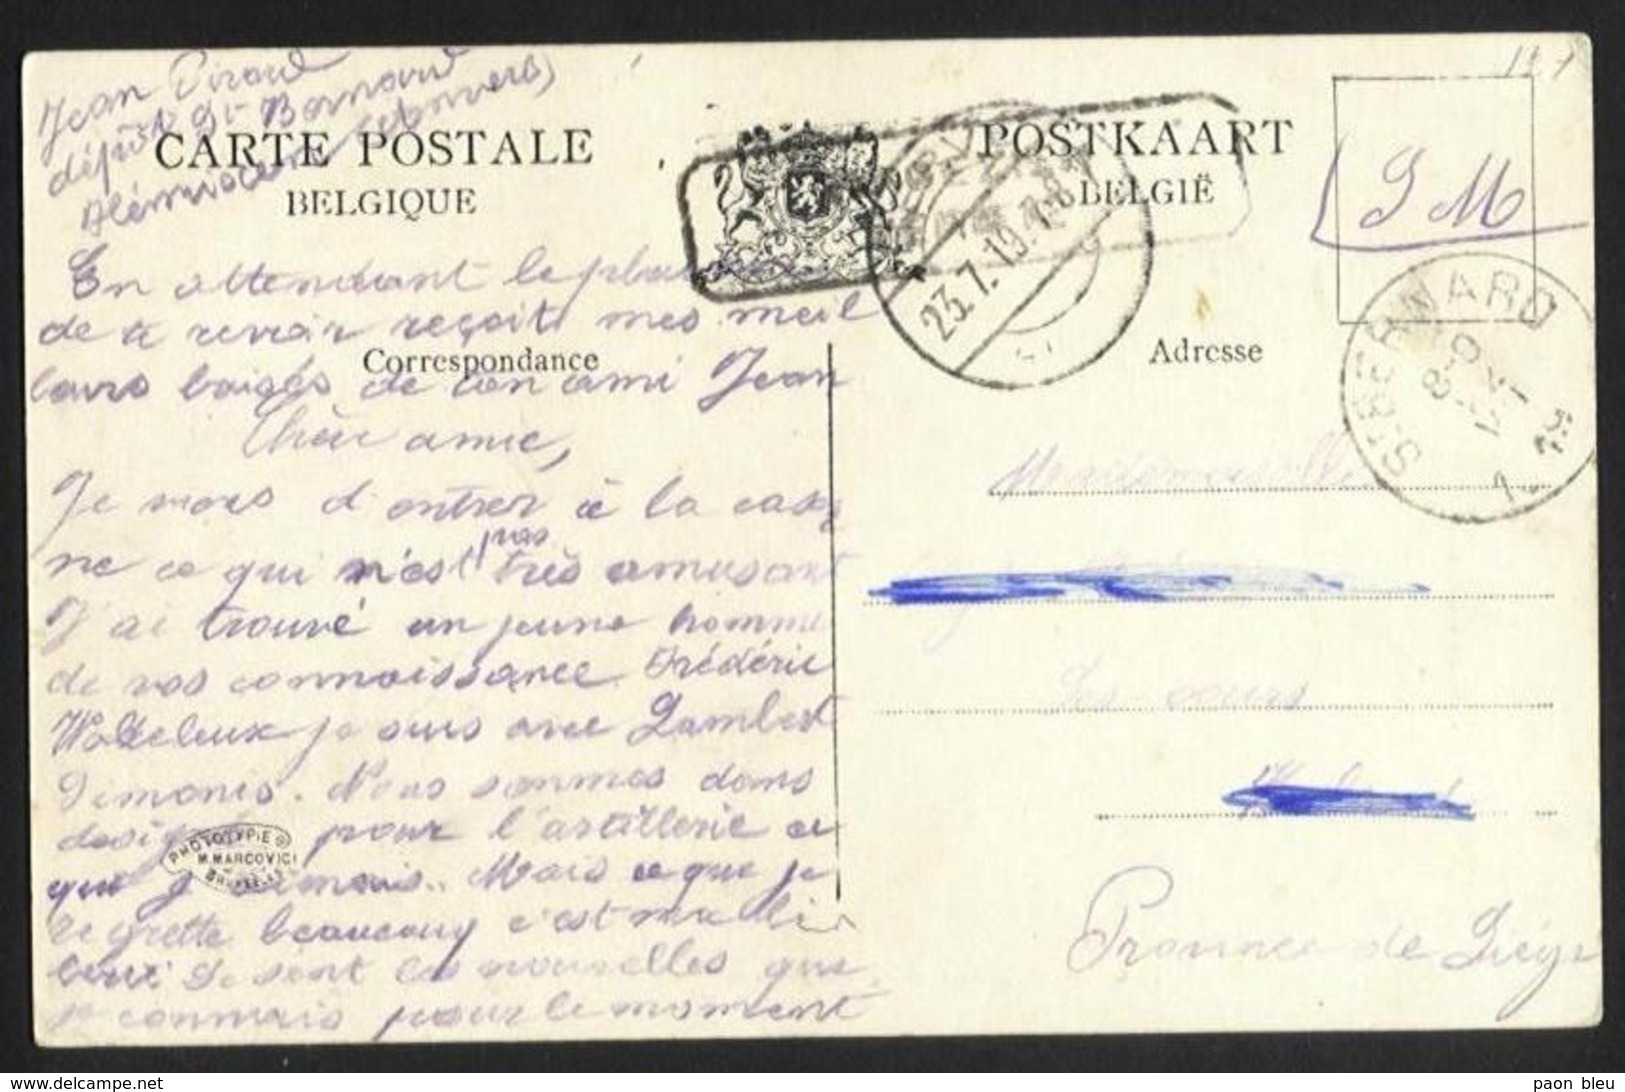 117
Jean Piraux
dépôt St Bernard
Hémixem (Anvers)
CARTE POSTALE
BELGIQUE
POSTKAART
BELGIË
S M
23.7.19
ST BERNARD
En attendant le plaisir
de te revoir reçoit mes meil
leurs baisés de ton ami Jean
Correspondance
Adresse
Chère amie,
Je vions d'entrer à la caser
ne ce qui n'est pas très amusant
J'ai trouvé un jeune homme
de vos connaissance Frédéric
je suis avec Lambert
Simonis. Nous sommes dans
pour l'artillerie ce
que j'aimais. Mais ce que je
regrette beaucoup c'est ma li
berté Se sont les nouvelles que
je connais pour le moment
PHOTOTYPIE
M. MARCOVICI
BRUXELLES
Mademoiselle
Les-cours
Province de Liége
paon bleu